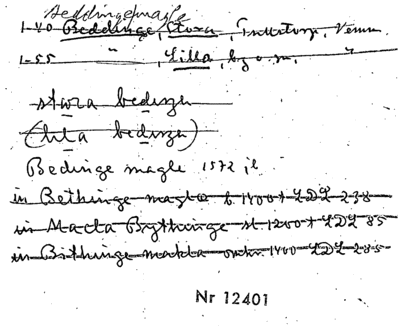 Beddingemagle
1-40 Beddinge, Stora, Trelleborg, Vemm.
1-55 " , Lilla, by o. sn, "
stora bedinge
(lila bedinge)
Bedinge magle 1572 jb
in Bethinge magle b. 1400 t LDL 238
in Macta Bythinge sl. 1200 t LDL 85
in Bithinge makla omkr. 1400 LDL 285
Nr 12401